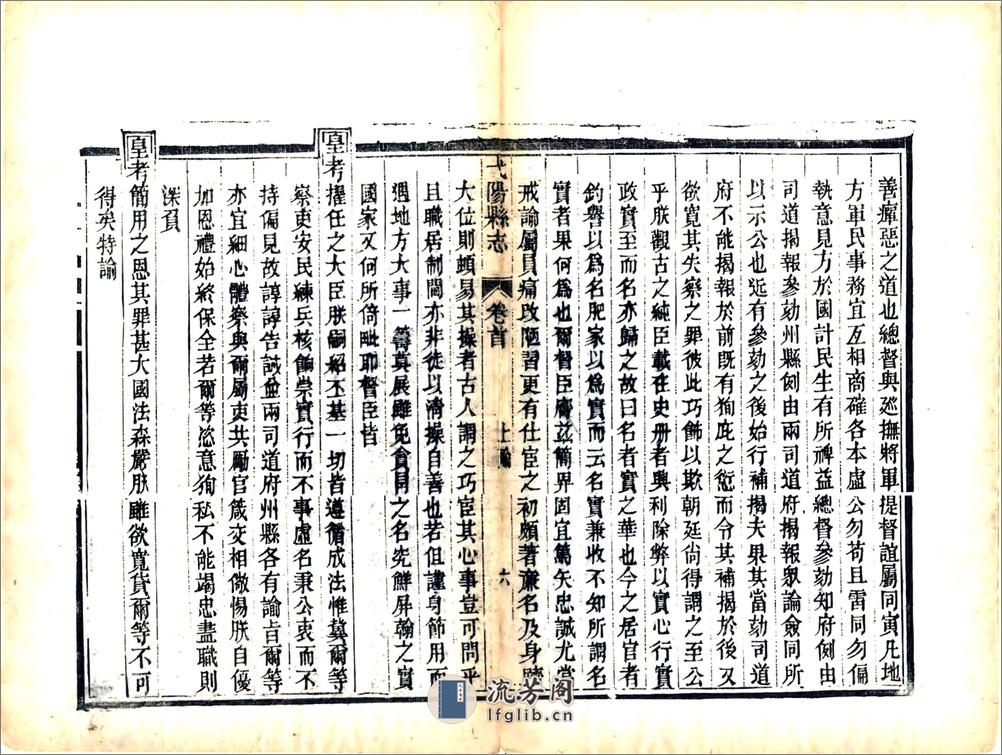 善癉惡之道也總督與廵撫將軍提督誼屬同寅凡地
方軍民事務宜互相商確各本虛公勿苟且雷同勿偏
執意見方於國計民生有所裨益總督參劾知府例由
司道揭報參劾州縣例由兩司道府揭報眾論僉同所
以示公也近有參劾之後始行補揭夫果其當劾司道
府不能揭報於前旣有狥庇之愆而令其補揭於後又
欲寬其失察之罪彼此巧飾以欺朝廷尙得謂之至公
乎朕觀古之純臣載在史册者興利除弊以實心行實
政實至而名亦歸之故曰名者實之華也今之居官者
釣譽以爲名肥家以爲實而云名實兼收不知所謂名
實者果何爲也爾督臣膺玆簡畀固宜篤矢忠誠尤當
戒諭屬員痛改陋習更有仕宦之初頗著廉名及身躋
弋陽縣志
卷首
上諭
六
大位則頓易其操者古人謂之巧宦其心事豈可問乎
且職居制閫亦非徒以淸操自善也若但謹身節用而
遇地方大事一籌莫展雖免貪冐之名究鮮屏翰之實
國家又何所倚毗耶督臣皆
皇考擢任之大臣朕嗣紹丕基一切皆遵循成法惟冀爾等
察吏安民練兵核餉崇實行而不事虛名秉公衷而不
持偏見故諄諄告誡並兩司道府州縣各有諭旨爾等
亦宜細心體察與爾屬吏共勵官箴交相儆惕朕自優
加恩禮始終保全若爾等恣意狥私不能竭忠盡職則
深負
皇考簡用之恩其罪甚大國法森嚴朕雖欲寬貸爾等不可
得矣特諭
流芳阁
lfglib.cn